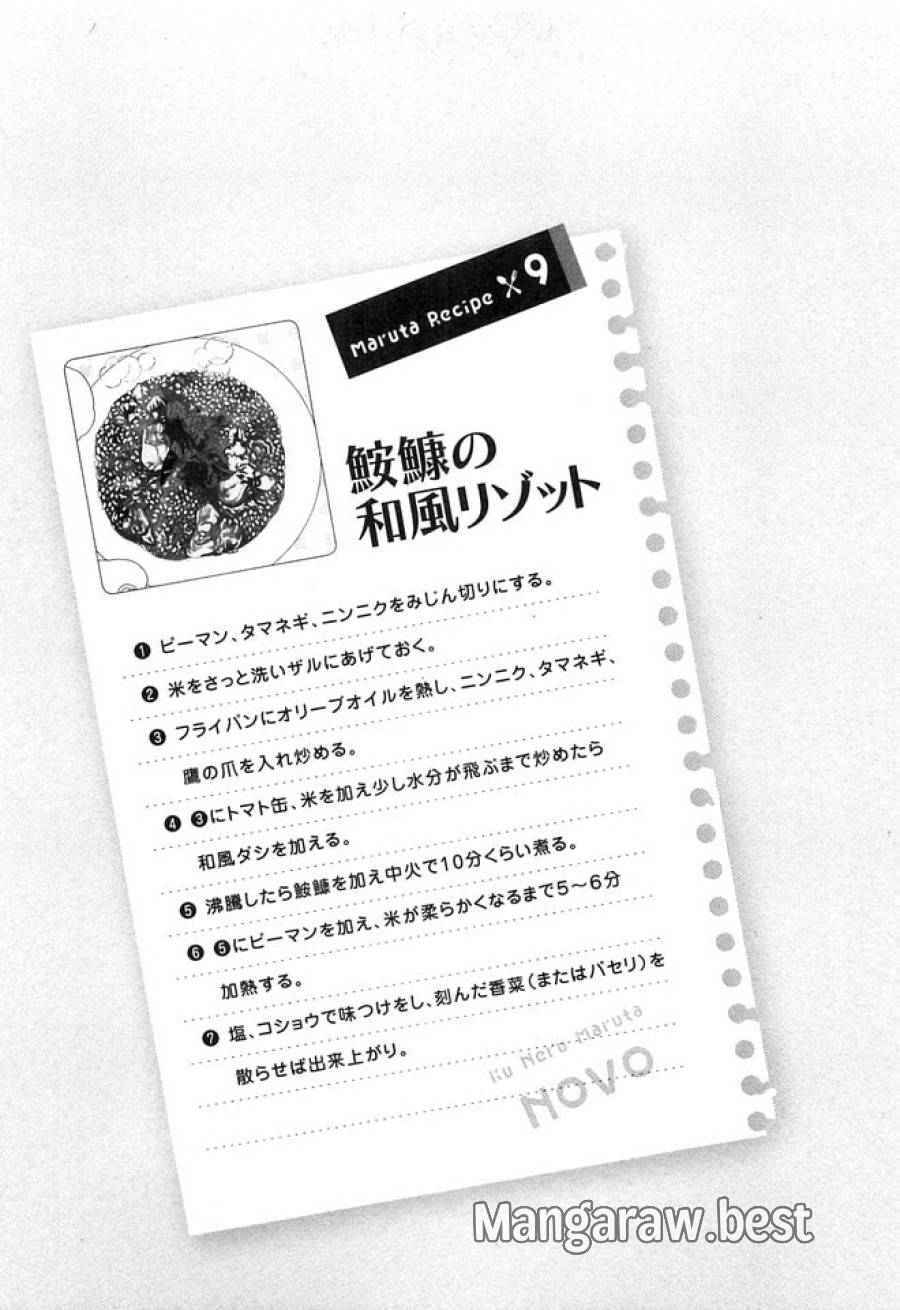 Maruta Recipe 9
鮟鱇の
和風リゾット
❶ ピーマン、タマネギ、ニンニクをみじん切りにする。
❷ 米をさっと洗いザルにあげておく。
❸ フライパンにオリーブオイルを熱し、ニンニク、タマネギ、
鷹の爪を入れ炒める。
❹ ❸にトマト缶、米を加え少し水分が飛ぶまで炒めたら
和風ダシを加える。
❺ 沸騰したら鮟鱇を加え中火で10分くらい煮る。
❻ ❺にピーマンを加え、米が柔らかくなるまで5～6分
加熱する。
❼ 塩、コショウで味つけをし、刻んだ香菜(またはパセリ)を
散らせば出来上がり。
Ku Neru Maruta
NOVO
Mangaraw.best